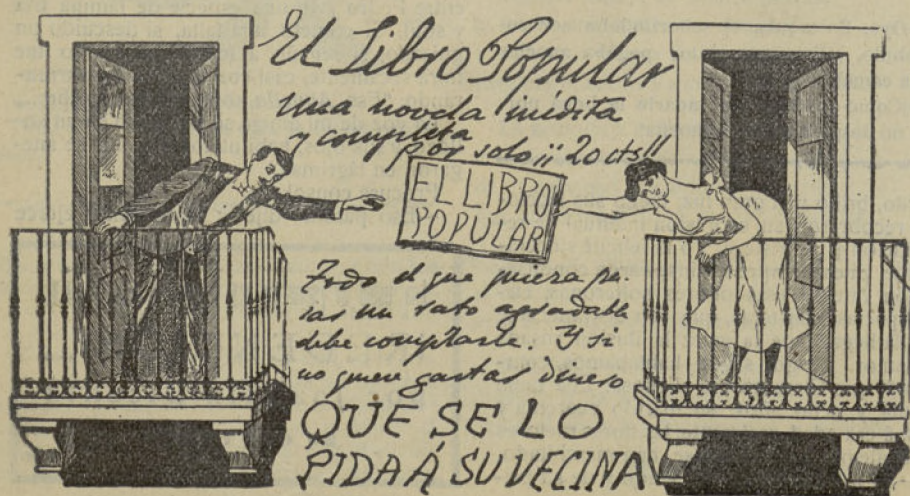 El Libro Popular
una novela inédita
y completa
por solo ¡¡ 20 cts!!
EL LIBRO
POPULAR
Todo el que quiera pa-
sar un rato agradable
debe comprarle. Y si
no quiere gastar dinero
QUE SE LO
PIDA Á SU VECINA